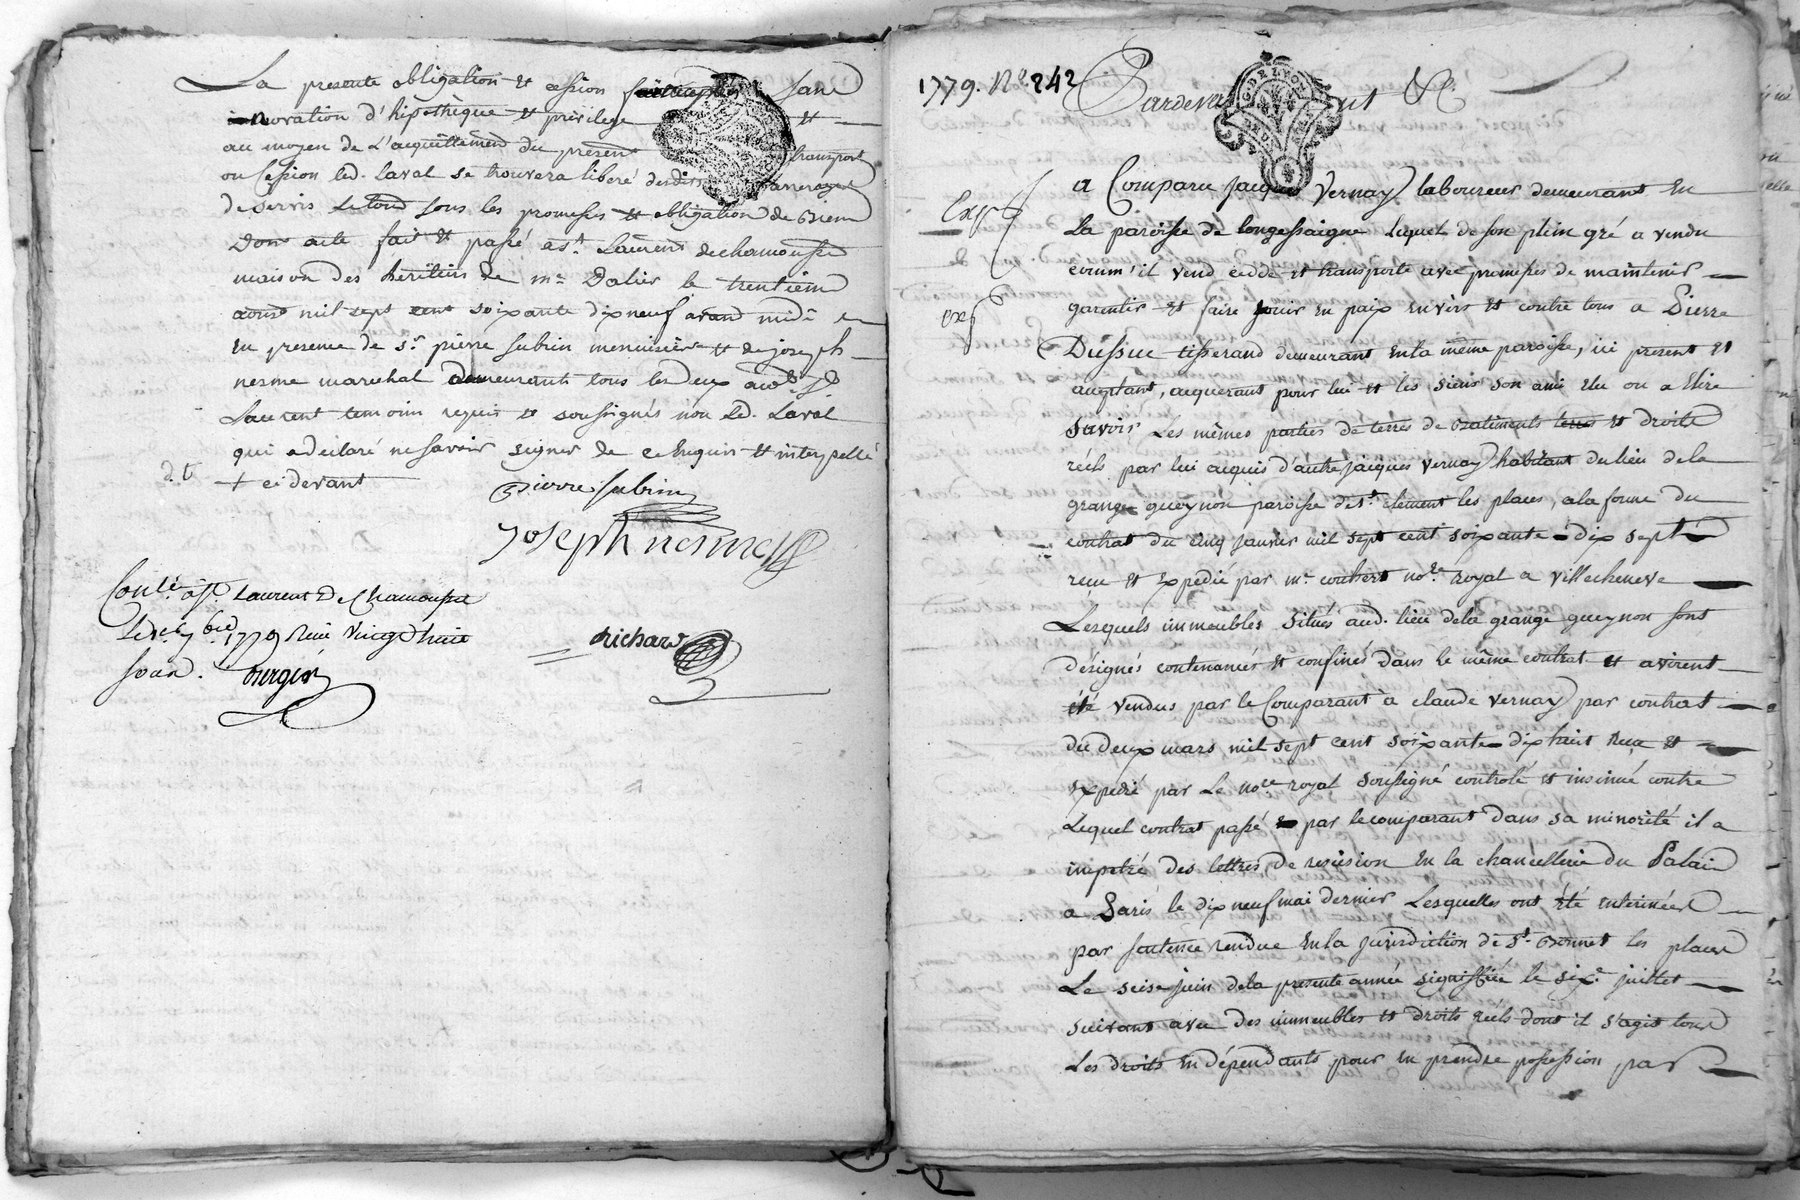 La presente obligation et cession sans
novation d'hipothèque et privilege et
au moyen de l'acquittement du present transport
ou Cession led. Laval se trouvera liberé desdits arrerages
de servis Le tout sous les promesses et obligation de biens
Dont acte fait et passé a st. Laurent de chamousset
maison des heritiers de me. Dalier le trentieme
aoust mil sept cent soixante dix neuf avant midi
en presence de sr. pierre subrin menuisier et de joseph
nesme marechal demeurants tous les deux aud. st.
Laurent temoins requis et soussignés non led. Laval
qui a declaré ne savoir signer de ce enquis et interpellé
d. t. + ci devant
pierre subrin
Joseph nesme
Conlé. a st. Laurent De Chamousset
Le 7bre 1779 Reçu vingt huit
sous.
Richard
1779. No. 242
Pardevant &c.
GD DE LYON
Exp
a Comparu jacques vernay laboureur demeurant en
La paroisse de longessaigne Lequel de son plein gré a vendu
comm'il vend cedde et transporte avec promesses de maintenir
exp
garentir et faire jouir en paix envers et contre tous a Pierre
Dussuc tisserand demeurant en la même paroisse, ici present et
acceptant, acquerant pour lui et les siens son ami elu ou a elire
Savoir Les mêmes parties de terres de batiments et droits
réels par lui acquis d'autre jacques vernay habitant du lieu de la
grange queynon paroisse de st. clement les places, a la forme du
contrat du cinq janvier mil sept cent soixante dix sept
recu et expedié par me. couhert nore. royal a villecheneve
Lesquels immeubles situés aud. lieu de la grange queynon sont
désignés contenancés et confinés dans le même contrat et avoient
été vendus par le Comparant à claude vernay par contrat
du deux mars mil sept cent soixante dix huit reçu et
expedié par Le nore. royal soussigné controlé et insinué contre
Lequel contrat passé par le comparant dans sa minorité il a
impetré des lettres de rescision en la chancellerie du Palais
a Paris le dix neuf mai dernier Lesquelles ont été enterinées
par sentence rendue en la jurisdiction de st. Bonnet les places
Le seise juin de la presente année signiffiée le sixe. juillet
suivant avec des immeubles et droits réels dont il s'agit tous
Les droits en dépendants pour en prendre possession par